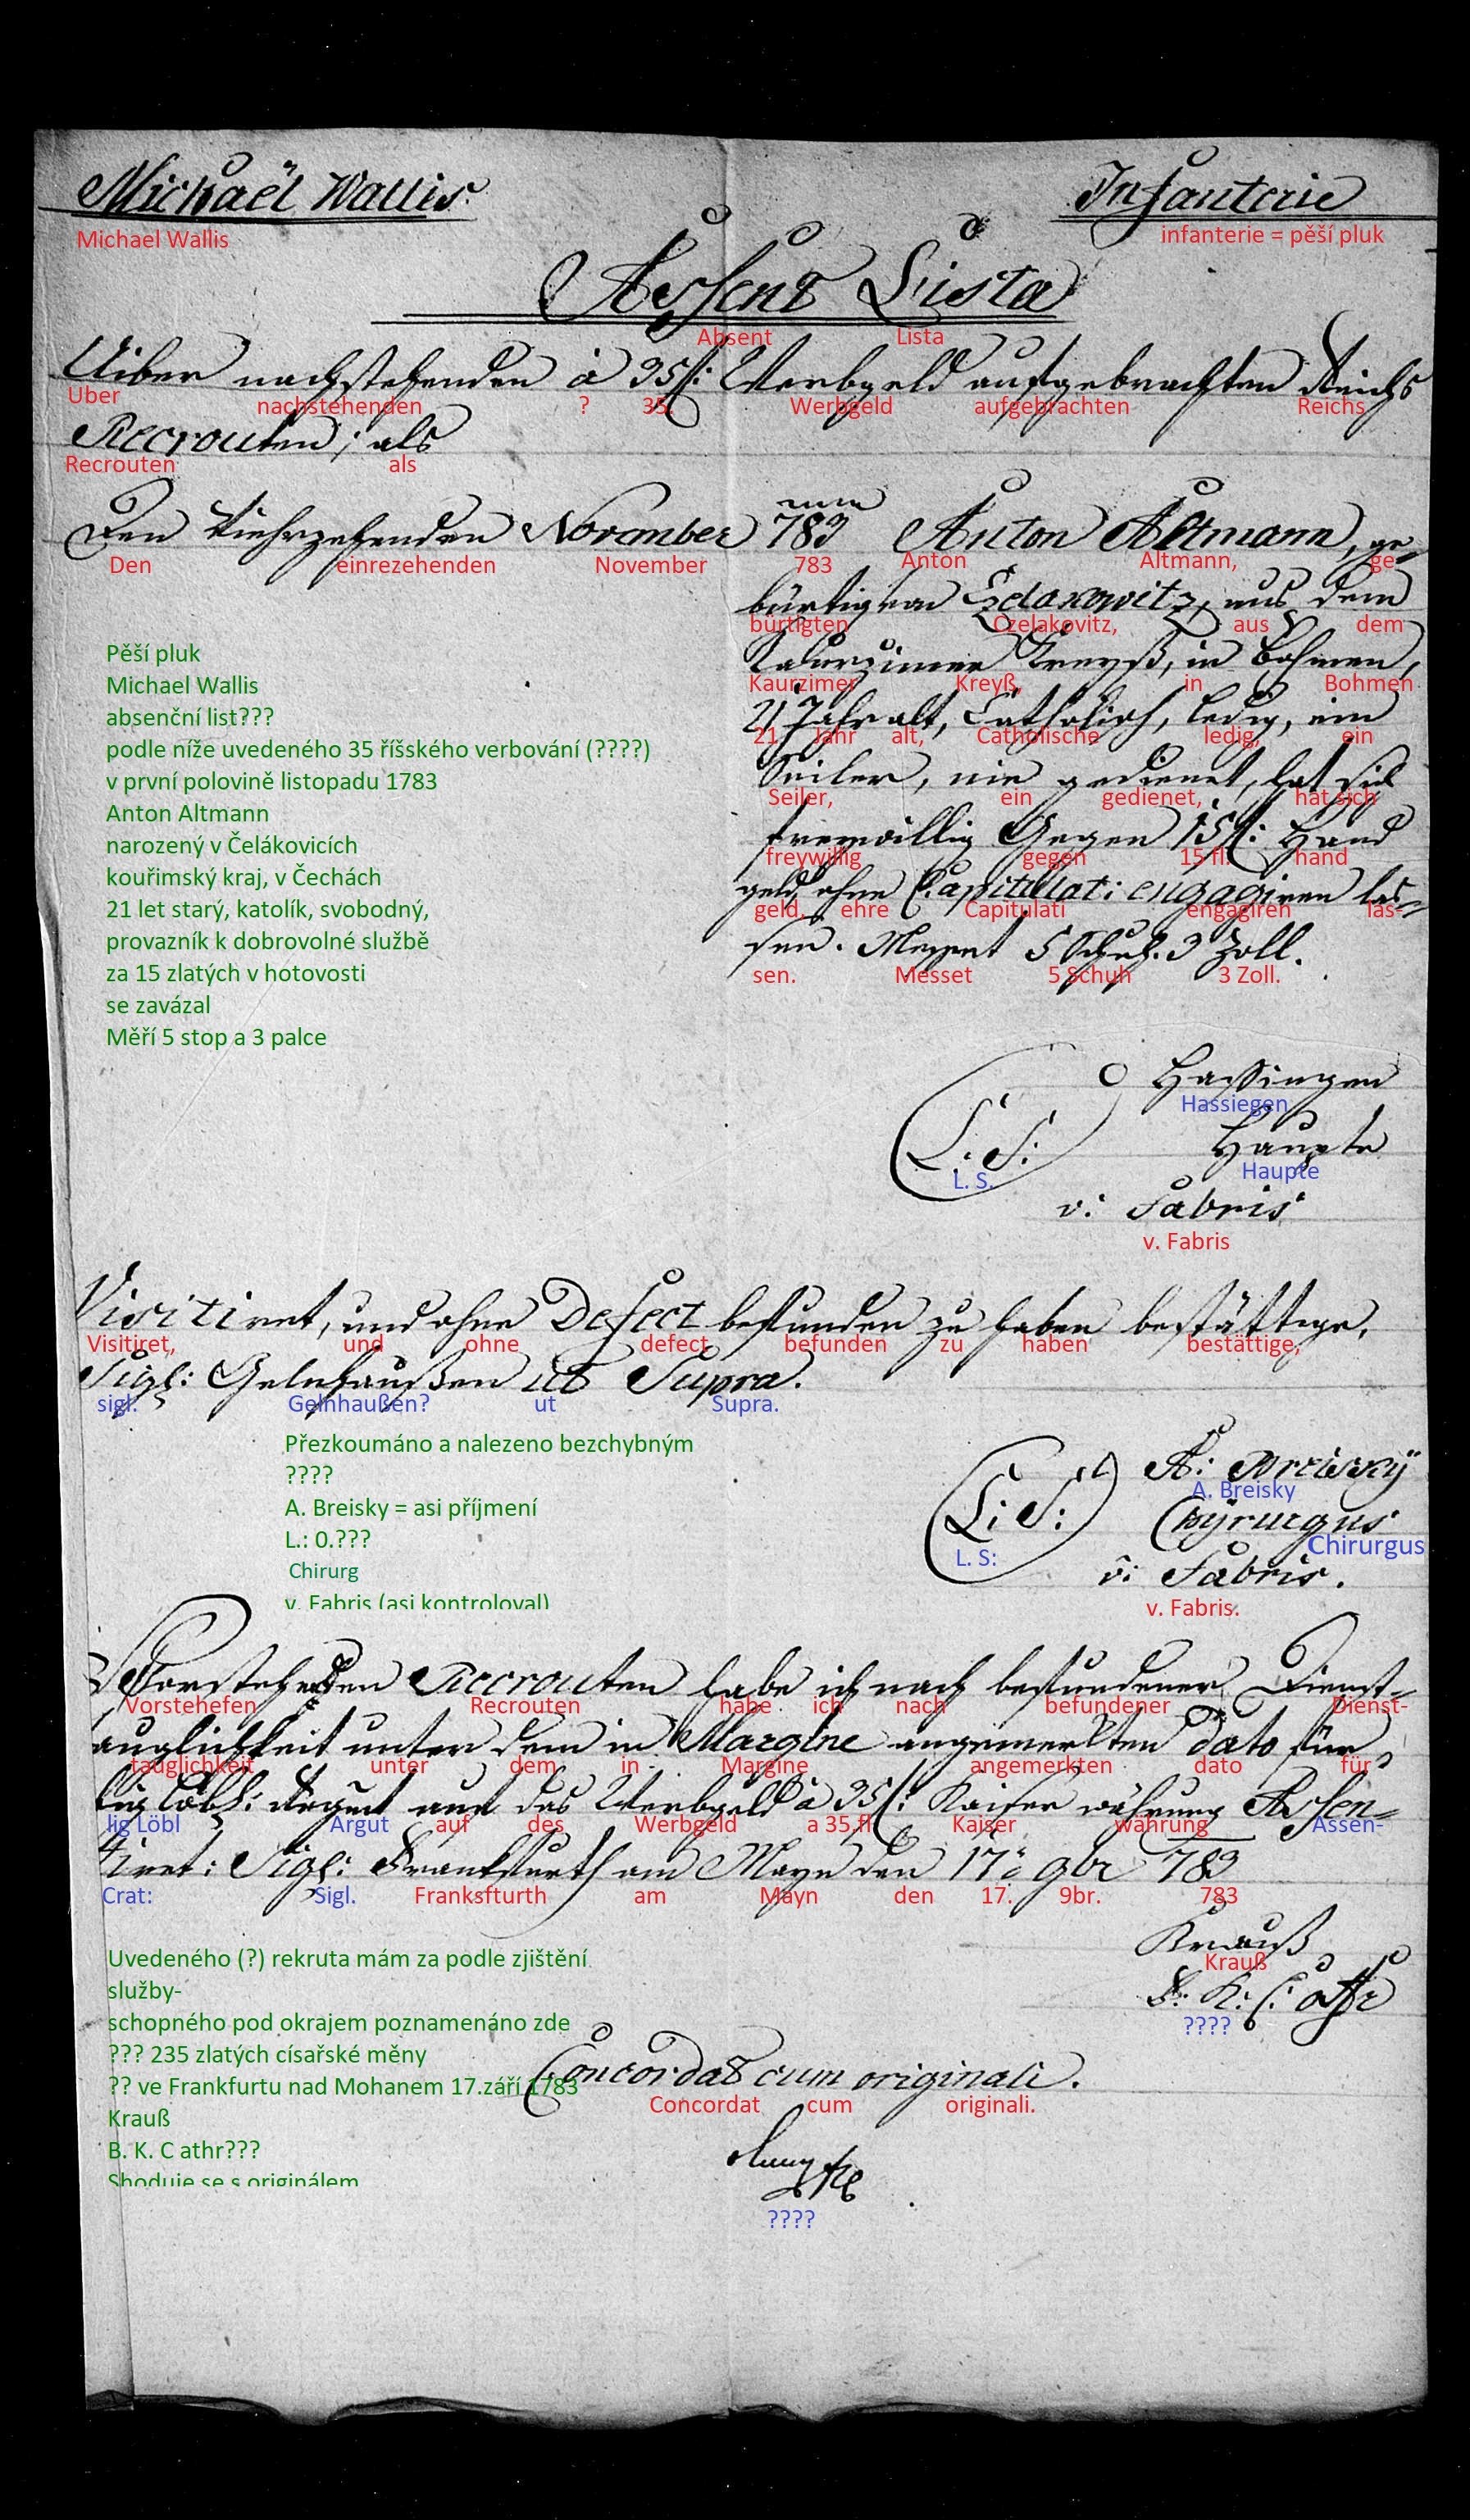 Michaël Wallis.
Infanterie
Michael Wallis
infanterie = pěší pluk
Assent Lista
Absent Lista
Uiber nachstehenden à 35 f: Werbgeld aufgebrachten Reichs
Uber nachstehenden ? 35. Werbgeld aufgebrachten Reichs
Recrouten; als
Recrouten als
Den Viehrzehenden November 783 Anton Altmann, ge-
Den einrezehenden November 783 Anton Altmann, ge-
bürtig von Czelakowitz, aus dem
bürtigten Czelakovitz, aus dem
Kaurzimer Kreyß, in Bohmen,
Kaurzimer Kreyß, in Bohmen
21 Jahr alt, Catholisch, ledig, ein
21 Jahr alt, Catholische ledig, ein
Seiler, nie gedienet, hat sich
Seiler, ein gedienet, hat sich
freywillig Gegen 15 f: Hand
freywillig gegen 15 fl. hand
geld, ohne Capitulat: engagiren las-
geld, ehre Capitulati engagiren las-
sen. Messet 5 Schuh. 3 Zoll.
sen. Messet 5 Schuh 3 Zoll.
Pěší pluk
Michael Wallis
absenční list???
podle níže uvedeného 35 říšského verbování (????)
v první polovině listopadu 1783
Anton Altmann
narozený v Čelákovicích
kouřimský kraj, v Čechách
21 let starý, katolík, svobodný,
provazník k dobrovolné službě
za 15 zlatých v hotovosti
se zavázal
Měří 5 stop a 3 palce
Hassingen
Hassiegen
L: S:
L. S.
Haupte
v: Fabris
v. Fabris
Visitiret, und ohne Defect befunden zu haben bestättige,
Visitiret, und ohne defect befunden zu haben bestättige,
Sigl: Gelnhaußen ut Supra.
sigl: Gelnhaußen? ut Supra.
Přezkoumáno a nalezeno bezchybným
????
A. Breisky = asi příjmení
L.: 0.???
Chirurg
v. Fabris (asi kontroloval)
L: S:
L. S:
A: Breisky
A. Breisky
Chyrurgus
Chirurgus
v: Fabris.
v. Fabris.
Vorstehenden Recrouten habe ich nach befundener Dienst-
Vorstehefen Recrouten habe ich nach befundener Dienst-
tauglichkeit unter dem in Margine angemerkten dato für
tauglichkeit unter dem in Margine angemerkten dato für
löbl: Regmt auf das Werbgeld à 35 f: Kaiser währung Assen-
lig Löbl Argut auf des Werbgeld a 35 fl Kajser währung Assen-
tiret: Sigl: Frankfurth am Mayn den 17 9br 783
Crat: Sigl. Franksfturth am Mayn den 17. 9br. 783
Krauß
Krauß
????
Uvedeného (?) rekruta mám za podle zjištění
služby-
schopného pod okrajem poznamenáno zde
??? 235 zlatých císařské měny
?? ve Frankfurtu nad Mohanem 17.září 1783
Krauß
B. K. C athr???
Shoduje se s originálem
Concordat cum originali.
Concordat cum originali.
????